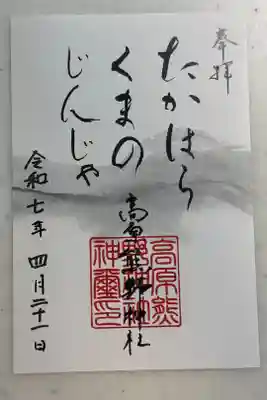 奉拝
たかはら
くまの
じんじゃ
高原熊野神社
高原熊
野神社
神璽印
令和七年 四月二十一日